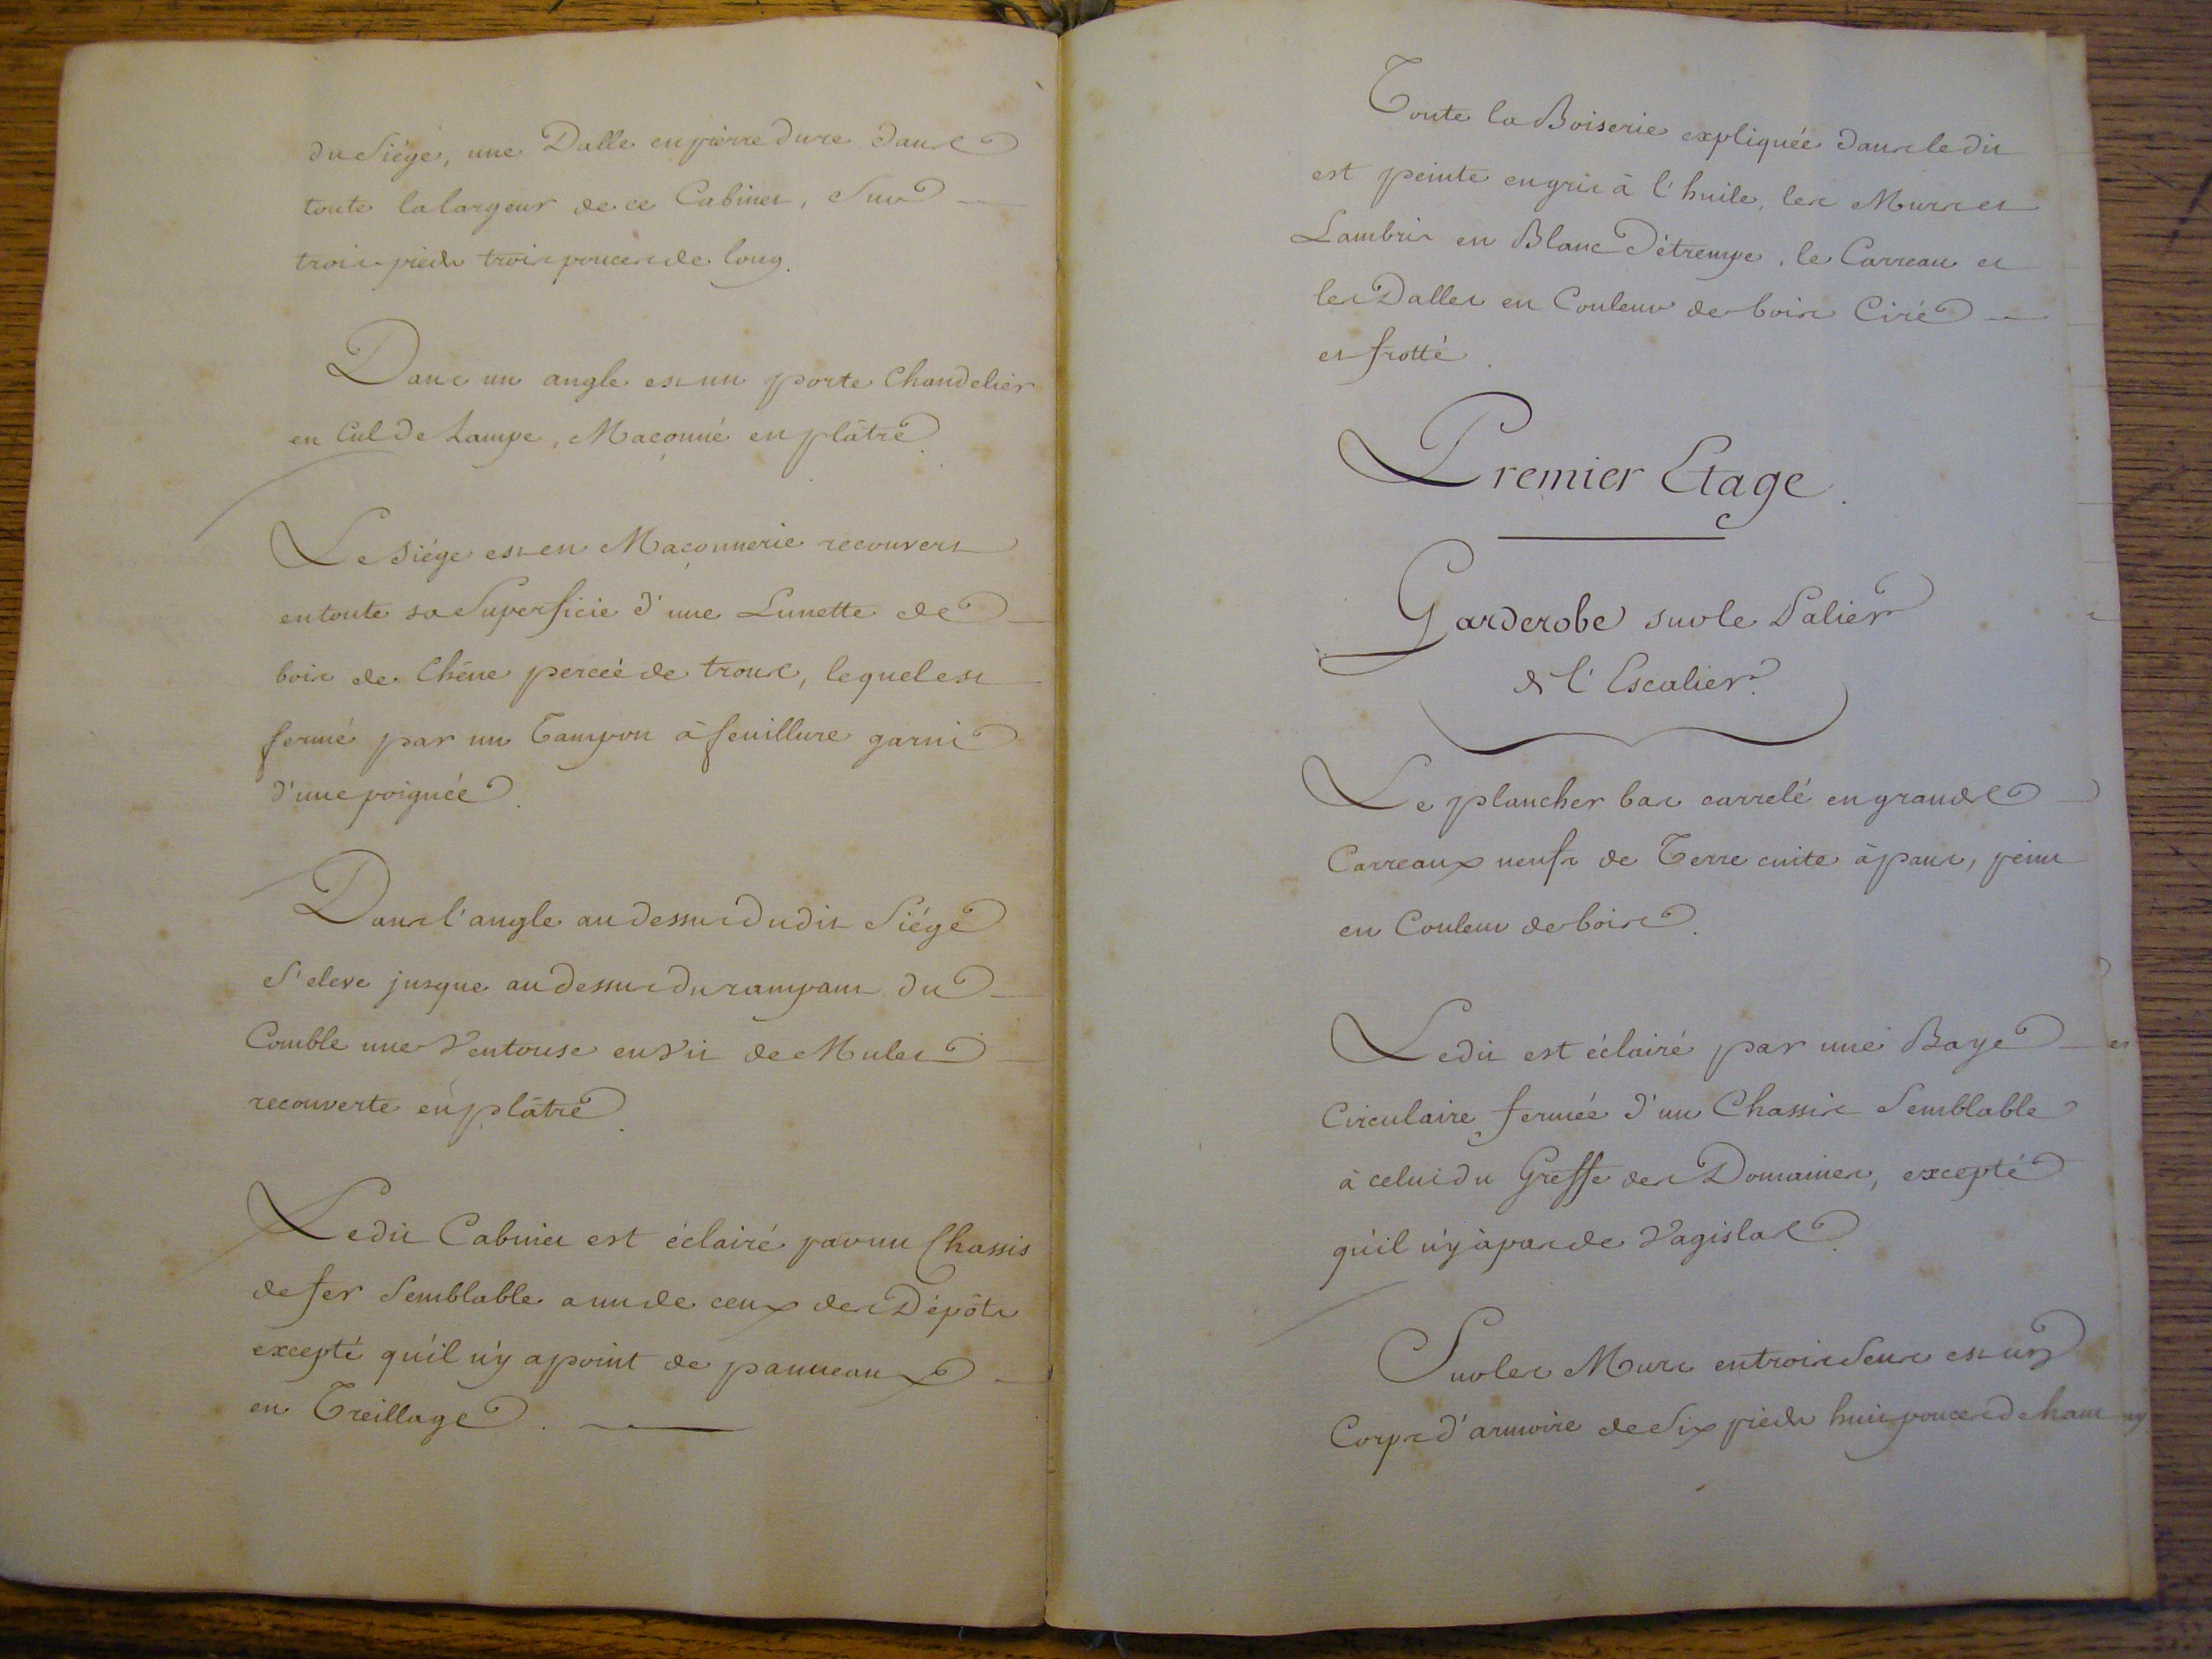 du Siége, une Dalle en pierre dure dans
toute la largeur de ce Cabinet, Sur
trois pieds trois pouces de long.
Dans un angle est un porte Chandelier
en Cul de Lampe, Maçonné en plâtre.
Le Siége est en Maçonnerie recouvert
en toute sa Superficie d'une Lunette de
bois de Chêne percée de trous, lequel est
fermé par un Tampon à feuillure garni
d'une poignée.
Dans l'angle au dessus du dit Siége
S'eleve jusque au dessus du rampant du
Comble une Ventouse en Vit de Mulet
recouverte en plâtre.
Le dit Cabinet est éclairé par un Chassis
de fer Semblable a un de ceux des Dépôts
excepté qu'il n'y a point de panneaux
en Treillage.
Toute la Boiserie expliquée dans le dit
est peinte en gris à l'huile, les Murs et
Lambris en Blanc Détrempe, le Carreau et
les Dalles en Couleur de bois Ciré
et frotté.
Premier Etage.
Garderobe sur le Palier
de l'Escalier.
Le plancher bas carrelé en grands
Carreaux neufs de Terre cuite à pans, peint
en Couleur de bois.
Le dit est éclairé par une Baye
Circulaire fermée d'un Chassis Semblable
à celui du Greffe des Domaines, excepté
qu'il n'y à pas de Vagislas.
Sur les Murs en trois Sens est un
Corps d'armoire de Six pieds huit pouces de haut